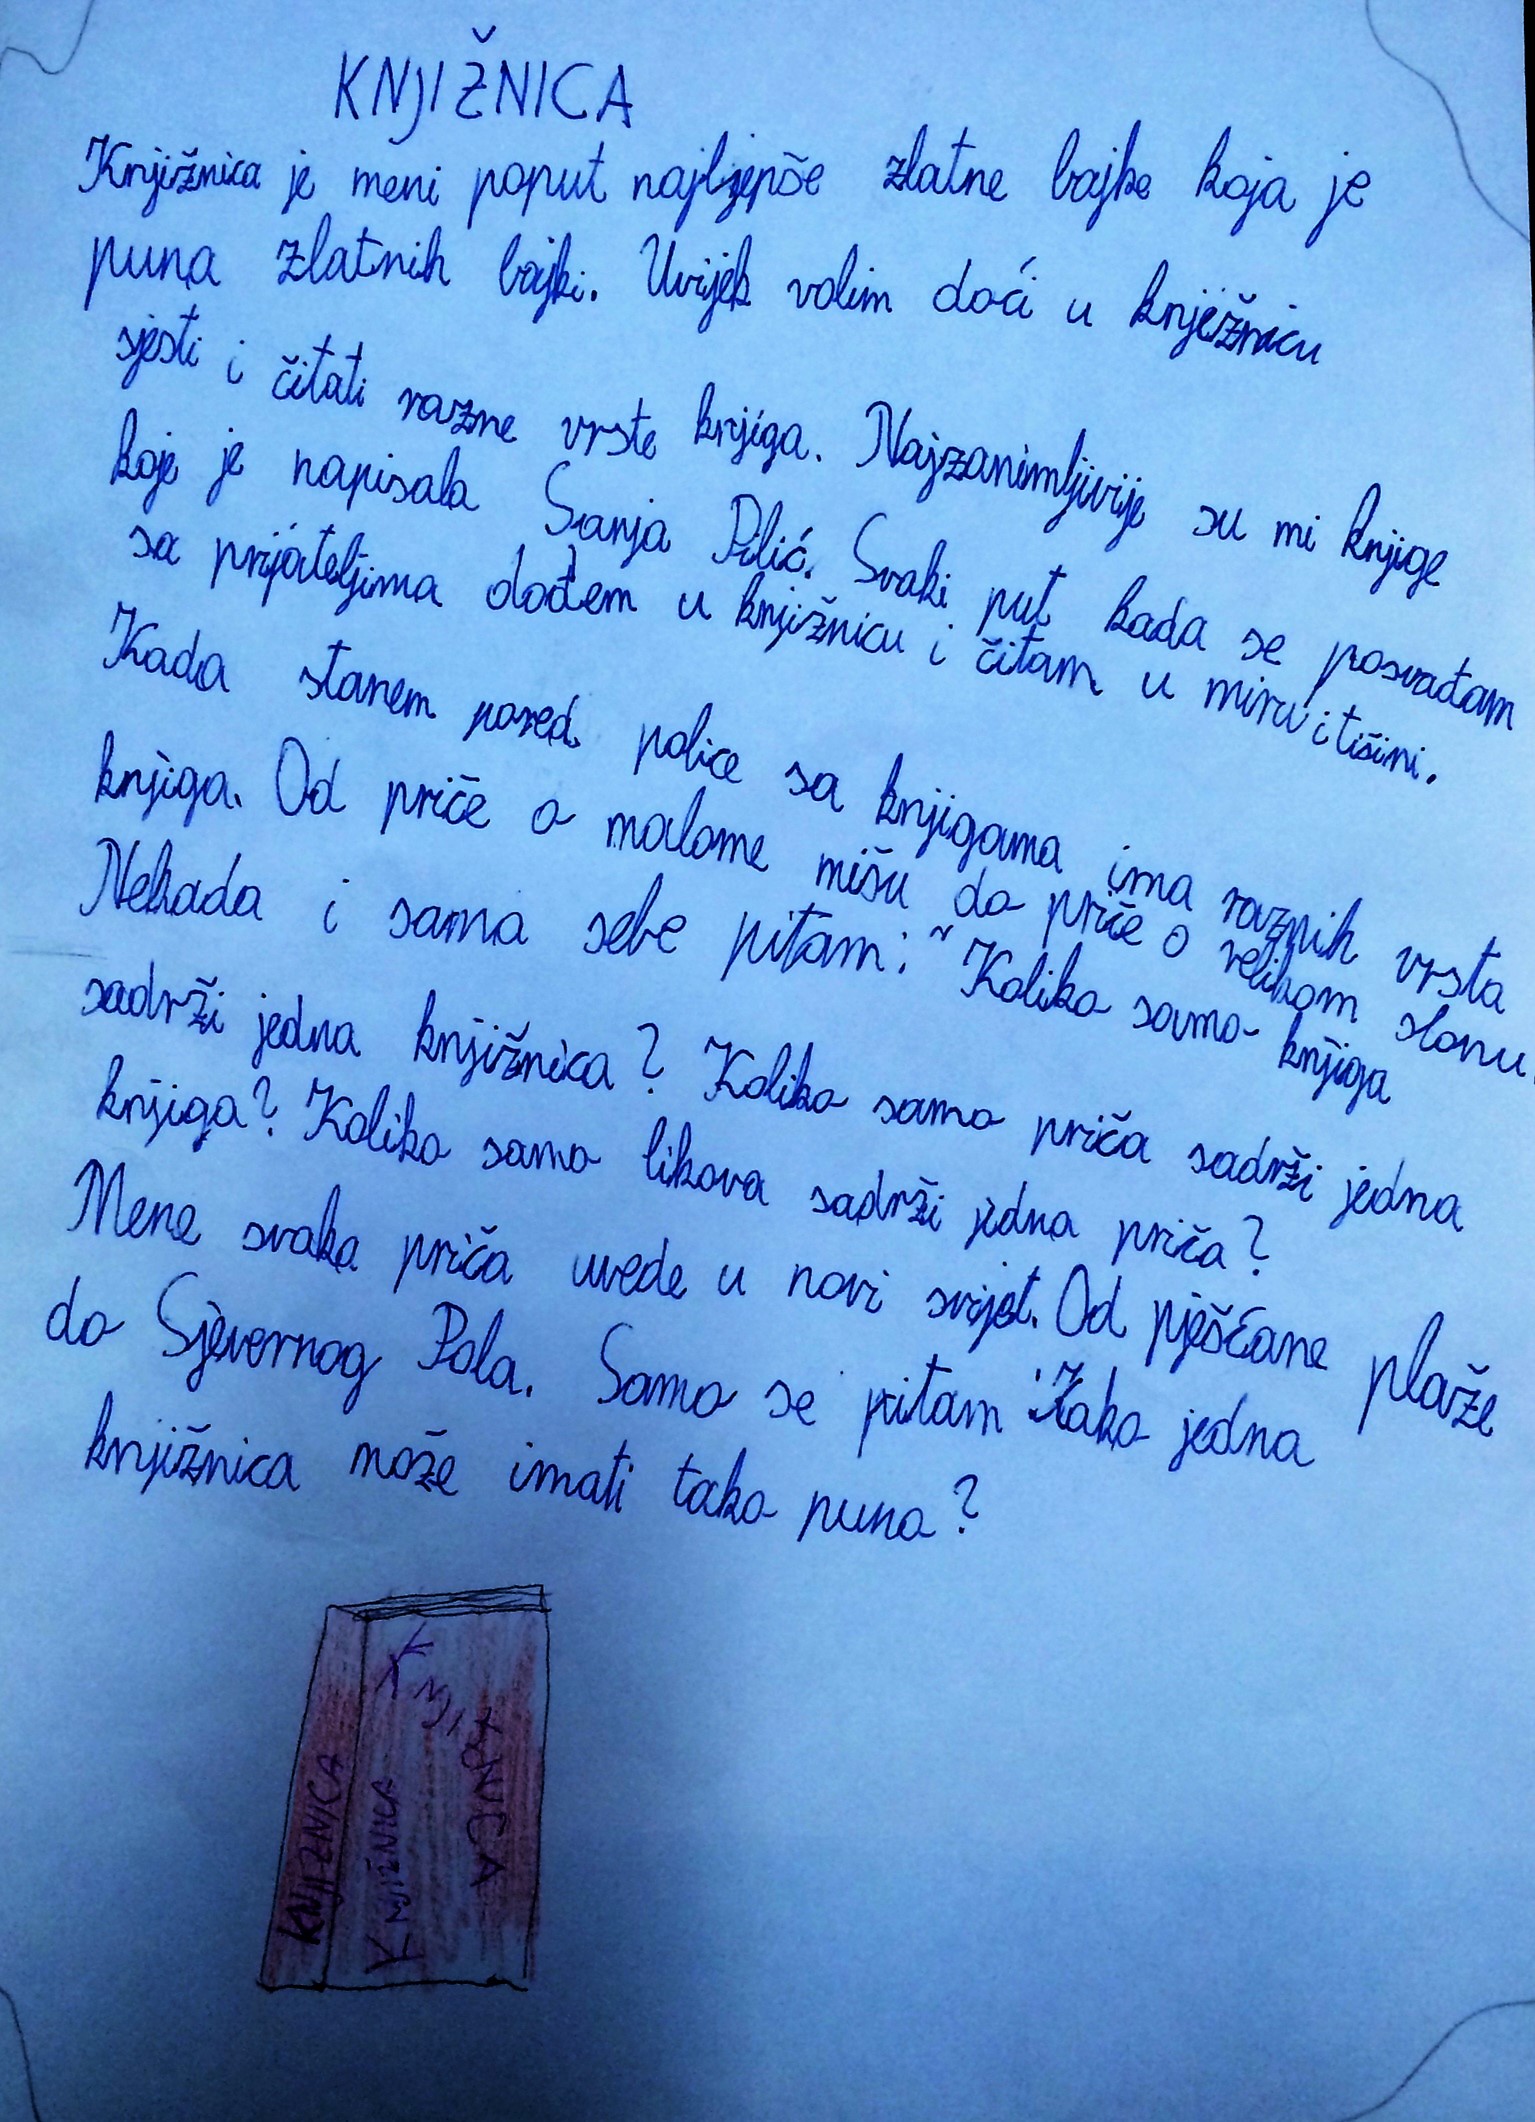 KNJIŽNICA
Knjižnica je meni poput najljepše zlatne bajke koja je
puna zlatnih bajki. Uvijek volim doći u knjižnicu
sjesti i čitati razne vrste knjiga. Najzanimljivije su mi knjige
koje je napisala Sanja Pilić. Svaki put kada se posvađam
sa prijateljima dođem u knjižnicu i čitam u miru i tišini.
Kada stanem pored police sa knjigama ima raznih vrsta
knjiga. Od priče o malome mišu do priče o velikom slonu.
Nekada i sama sebe pitam: "Koliko samo knjiga
sadrži jedna knjižnica? Koliko samo priča sadrži jedna
knjiga? Koliko samo likova sadrži jedna priča?
Mene svaka priča uvede u novi svijet. Od pješčane plaže
do Sjevernog Pola. Samo se pitam "Kako jedna
knjižnica može imati tako puno?
KNJIŽNICA
KNJIŽNICA
KNJIŽNICA